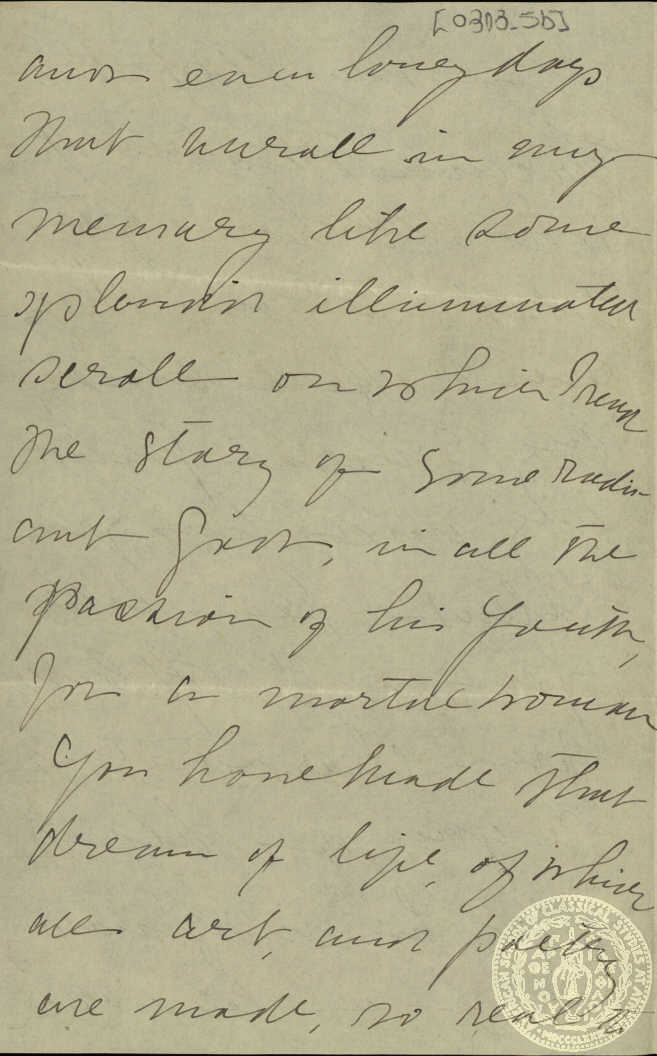 [0313_5b]
and even long days
that unroll in my
memory like some
splendid illuminated
scroll on which I read
the story of some radi-
ant God, in all the
passion of his youth,
for a mortal woman
You have made that
dream of life, of which
all art, and poetry
are made, so real to
AMERICAN SCHOOL OF CLASSICAL STUDIES AT
MDCCCLXXXI